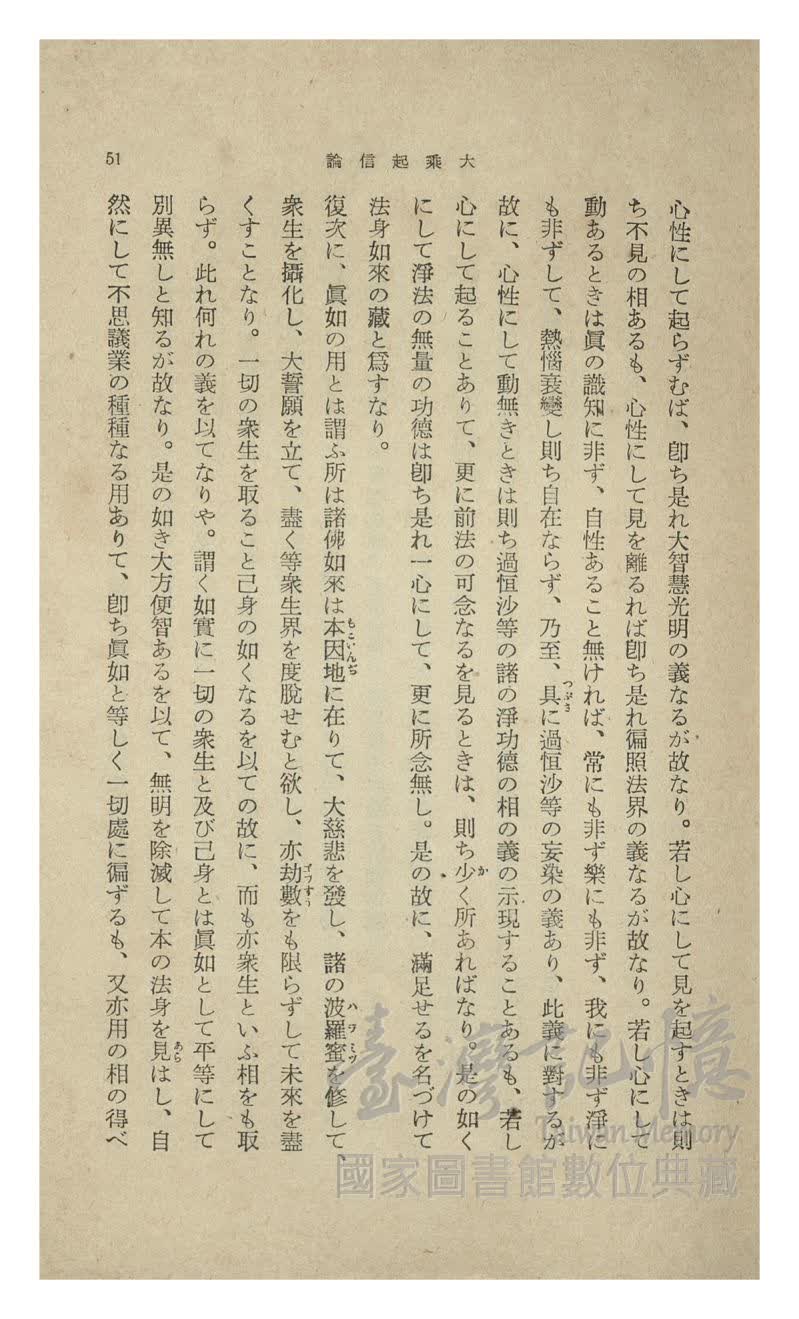 大乘起信論
51
心性にして起らずむば、卽ち是れ大智慧光明の義なるが故なり。若し心にして見を起すときは則
ち不見の相あるも、心性にして見を離るれば卽ち是れ徧照法界の義なるが故なり。若し心にして
動あるときは眞の識知に非ず、自性あること無ければ、常にも非ず樂にも非ず、我にも非ず淨に
も非ずして、熱惱衰變し則ち自在ならず、乃至、具つぶさに過恒沙等の妄染の義あり、此義に對するが
故に、心性にして動無きときは則ち過恒沙等の諸の淨功德の相の義の示現することあるも、若し
心にして起ることありて、更に前法の可念なるを見るときは、則ち少かく所あればなり。是の如く
にして淨法の無量の功德は卽ち是れ一心にして、更に所念無し。是の故に、滿足せるを名づけて
法身如來の藏と爲すなり。
復次に、眞如の用とは謂ふ所は諸佛如來は本因地もといんぢに在りて、大慈悲を發し、諸の波羅蜜ハラミツを修して、
衆生を攝化し、大誓願を立て、盡く等衆生界を度脫せむと欲し、亦劫數ゴフすうをも限らずして未來を盡
くすことなり。一切の衆生を取ること己身の如くなるを以ての故に、而も亦衆生といふ相をも取
らず。此れ何れの義を以てなりや。謂く如實に一切の衆生と及び己身とは眞如として平等にして
別異無しと知るが故なり。是の如き大方便智あるを以て、無明を除滅して本の法身を見あらはし、自
然にして不思議業の種種なる用ありて、卽ち眞如と等しく一切處に徧ずるも、又亦用の相の得べ
臺灣記憶
Taiwan Memory
國家圖書館數位典藏